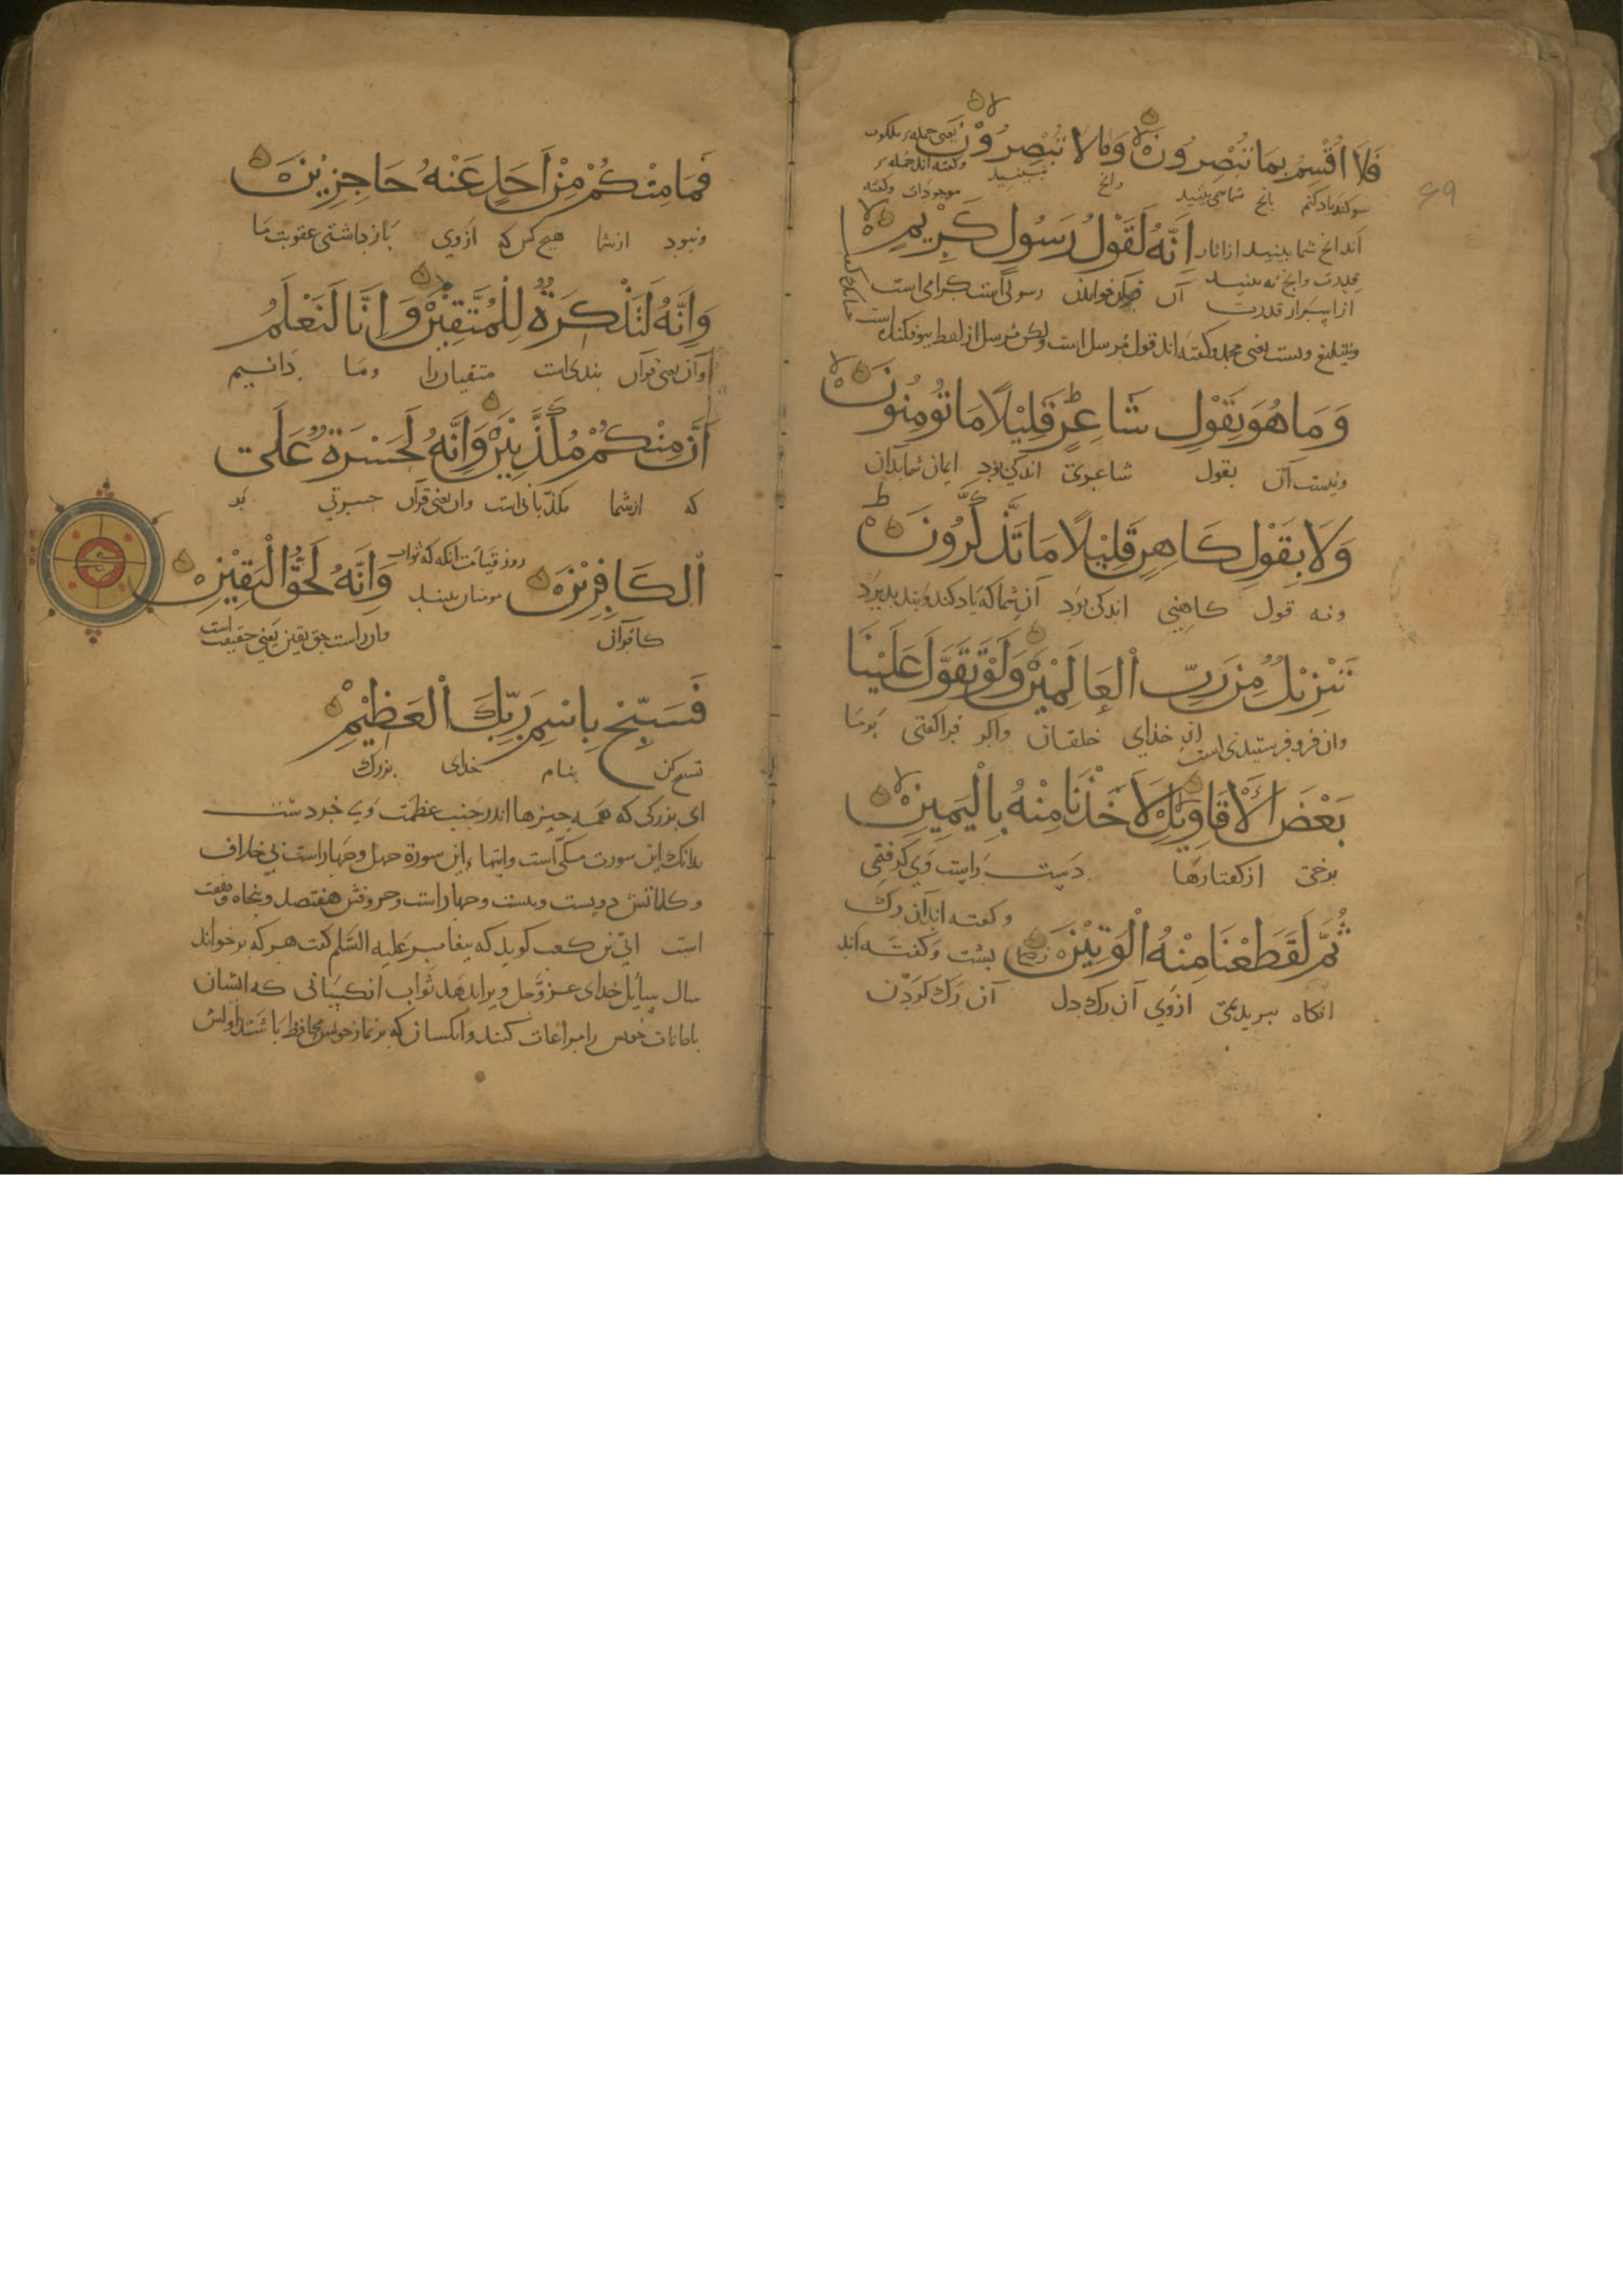 فَلَا اُقْسِمُ بِمَا تُبْصِرُونَ وَمَا لَا تُبْصِرُوْنَ یعنی جمله ملکوت
وکفته اند جمله
سوکند یاد کنم بانچ شما می بینید وانچ نبینید موجودات وکفته
اند انچ شما بینید از اثار اِنَّهُ لَقَوْلُ رَسُولٍ كَرِيْمٍ
قدرت وانچ نه بینید
از اسرار قدرت آن خواندن رسولی است کرامی است
یعنی محمد وکفته اند قول مرسل است ولکن مرسل از لفظ
وَمَا هُوَ بِقَوْلِ شَاعِرٍ قَلِيْلًا مَا تُومِنُونَ
ونیست آن بقول شاعری اندکی بود ایمان شما بدان
وَلَا بِقَوْلِ كَاهِنٍ قَلِيْلًا مَا تَذَّكَّرُونَ
ونه قول کاهنی اندکی بود آن شما که یاد کنید
تَنْزِيْلٌ مِنْ رَبِّ الْعَالَمِيْنَ وَلَوْ تَقَوَّلَ عَلَيْنَا
وان فرو فرستیدنی است از خذای خلقان واکر فرا کفتی بر ما
بَعْضَ الْاَقَاوِيْلِ لَاَخَذْنَا مِنْهُ بِالْيَمِينِ
برخی از کفتارها دست راست وی کرفتمی
وکفته اند آن رک
ثُمَّ لَقَطَعْنَا مِنْهُ الْوَتِيْنَ پشت وکفته اند
انکاه ببریدیمی از وی آن رک دل آن رک کردن
فَمَا مِنْكُمْ مِنْ اَحَدٍ عَنْهُ حَاجِزِيْنَ
ونبود از شما هیچ کس که از وی بازداشتی عقوبت ما
وَاِنَّهُ لَتَذْكِرَةٌ لِلْمُتَّقِيْنَ وَاِنَّا لَنَعْلَمُ
وآن یعنی قرآن پندی است متقیان را وما دانیم
اَنَّ مِنْكُمْ مُكَذِّبِيْنَ وَاِنَّهُ لَحَسْرَةٌ عَلَى
که از شما مکذبانی است وان یعنی قرآن حسرتی بر
الْكَافِرِيْنَ روز قیامت انکه که ثواب مومنان بینند وَاِنَّهُ لَحَقُّ الْيَقِيْنِ
کافران وان راست حق یقین یعنی حقیقت است
فَسَبِّحْ بِاسْمِ رَبِّكَ الْعَظِيْمِ
تسبیح کن بنام خدای بزرک
ای بزرکی که همه چیزها اندر جنب عظمت وی خردست
بدانک این سورت مکی است وایتهاء این سورة چهل وچهار است بی خلاف
وکلماتش دویست وبیست وچهار است وحروفش هفتصد وپنجاه وهفت
است ابی بن کعب کوید که پیغامبر علیه السلم کفت هر که بر خواند
سال سایل خدای عز وجل ویرا بدهد ثواب انکسانی که ایشان
بامانات خویش را مراعات کنند وانکسان که بر نماز خویش محافظ باشند